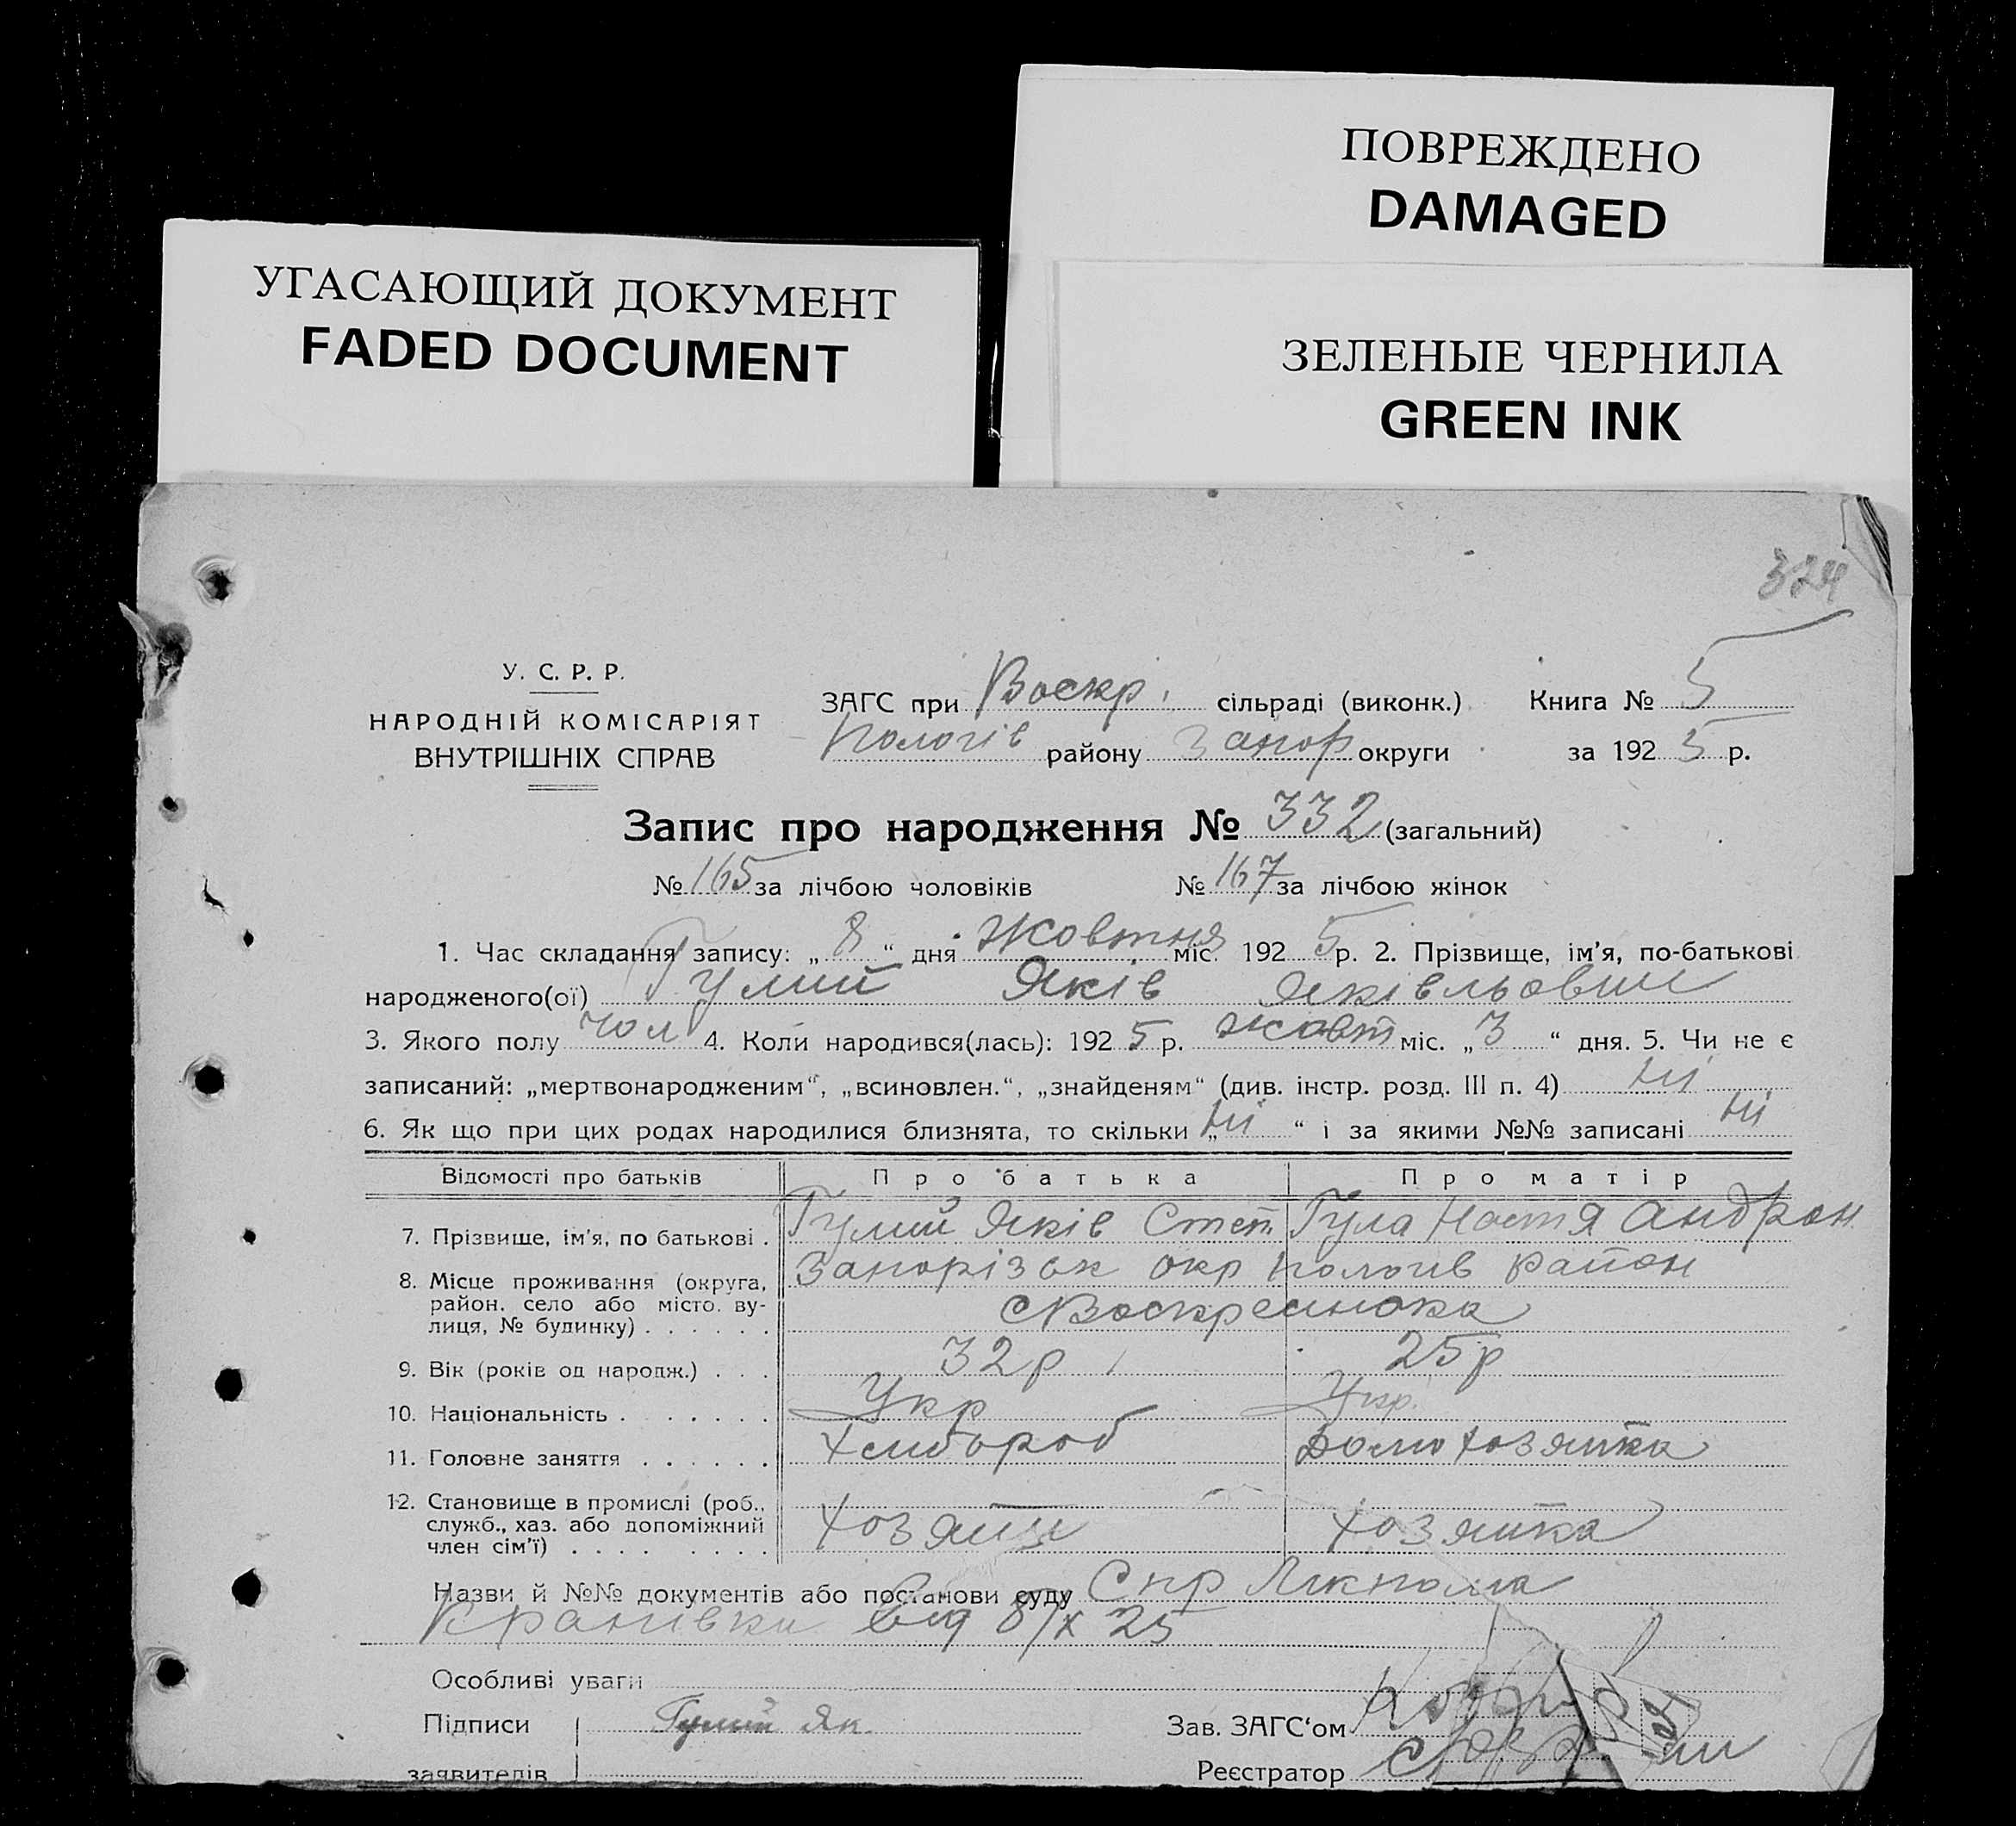 ПОВРЕЖДЕНО
DAMAGED
УГАСАЮЩИЙ ДОКУМЕНТ
FADED DOCUMENT
ЗЕЛЕНЫЕ ЧЕРНИЛА
GREEN INK
324
У. С. Р. Р.
НАРОДНІЙ КОМІСАРІЯТ
ВНУТРІШНІХ СПРАВ
ЗАГС при Воскр. сільраді (виконк.) Книга № 5
Пологів району Запор округи за 1925 р.
Запис про народження № 332 (загальний)
№ 165 за лічбою чоловіків № 167 за лічбою жінок
1. Час складання запису: „8“ дня Жовтня міс. 1925 р. 2. Прізвище, ім’я, по-батькові
народженого(ої) Гулий Яків Яківльович
3. Якого полу чол 4. Коли народився(лась): 1925 р. жовт міс. „3“ дня. 5. Чи не є
записаний: „мертвонародженим“, „всиновлен.“, „знайденям“ (див. інстр. розд. III п. 4) ні
6. Як що при цих родах народилися близнята, то скільки „ні“ і за якими №№ записані ні
Відомості про батьків Про батька Про матір
7. Прізвище, ім’я, по батькові . Гулий Яків Степ. Гула Настя Андрон.
8. Місце проживання (округа, район, село або місто, вулиця, № будинку) . . . . . . Запорізьк окр Пологів район
с Воскресинока
9. Вік (років од народж.) . . . 32 р 25 р
10. Національність . . . . . . . Укр Укр.
11. Головне заняття . . . . . . Хлибороб Домохозяйка
12. Становище в промислі (роб., служб., хаз. або допоміжний член сім’ї) . . . . . . . . Хозяин хозяйка
Назви й №№ документів або постанови суду Спр
від 8/X 25
Особливі уваги
Підписи Гулий Як. Зав. ЗАГС‘ом
заявителів Реєстратор